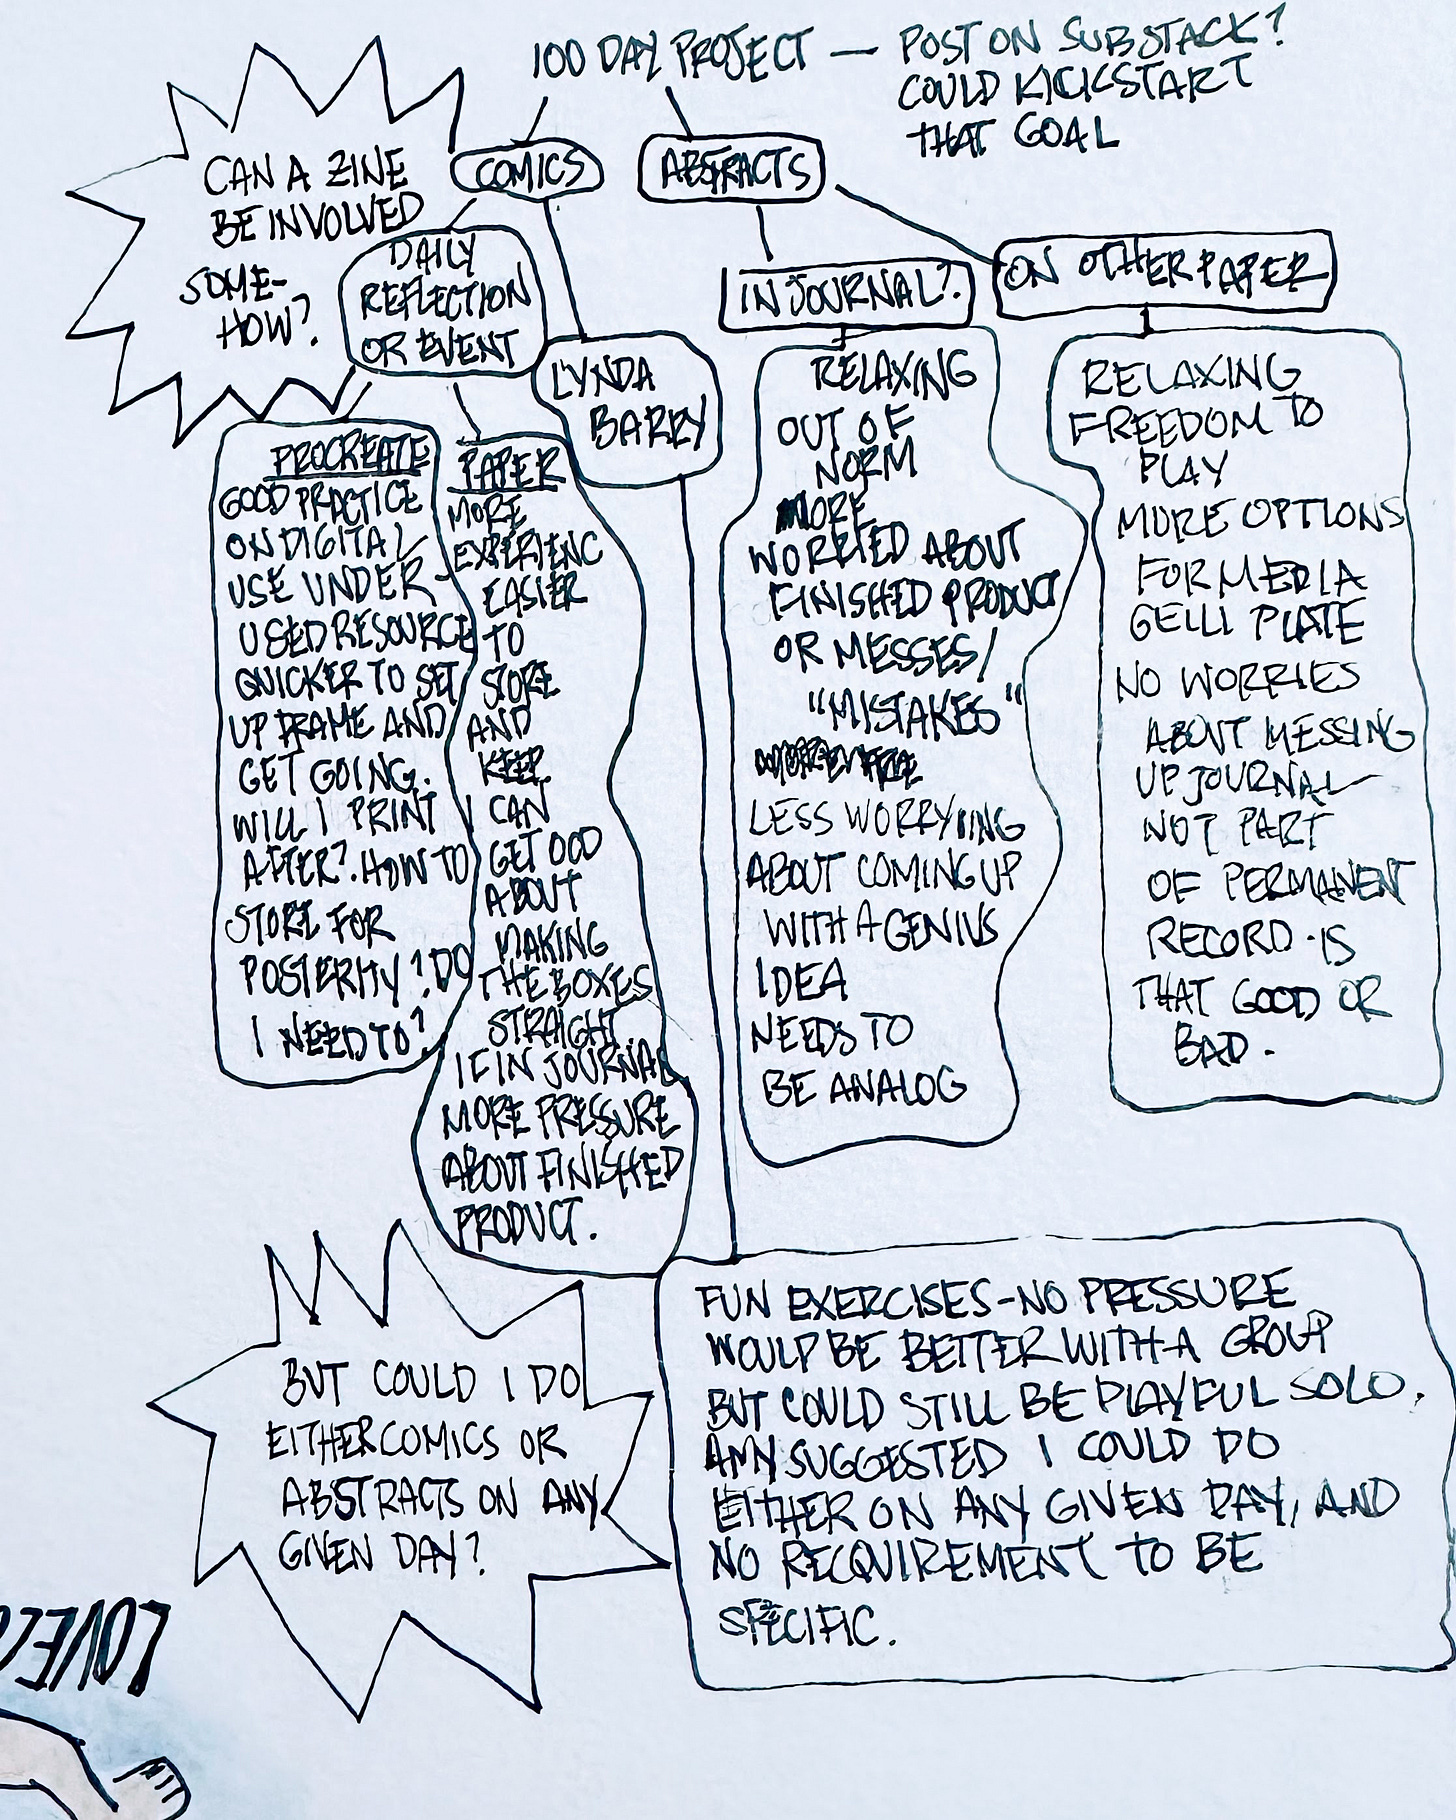 100 DAY PROJECT — POST ON SUBSTACK?
COULD KICKSTART
THAT GOAL
CAN A ZINE
BE INVOLVED
SOME-
HOW?
COMICS
ABSTRACTS
DAILY
REFLECTION
OR EVENT
LYNDA
BARRY
IN JOURNAL?
ON OTHER PAPER
PROCREATE
GOOD PRACTICE
ON DIGITAL
USE UNDER-
USED RESOURCE
QUICKER TO SET
UP FRAME AND
GET GOING.
WILL I PRINT
AFTER? HOW TO
STORE FOR
POSTERITY? DO
I NEED TO?
PAPER
MORE
EXPERIENC
EASIER
TO
STORE
AND
KEEP.
I CAN
GET OCD
ABOUT
MAKING
THE BOXES
STRAIGHT
IF IN JOURNAL
MORE PRESSURE
ABOUT FINISHED
PRODUCT.
RELAXING
OUT OF
NORM
MORE
WORRIED ABOUT
FINISHED PRODUCT
OR MESSES/
"MISTAKES"
LESS WORRYIING
ABOUT COMING UP
WITH A GENIUS
IDEA
NEEDS TO
BE ANALOG
RELAXING
FREEDOM TO
PLAY
MORE OPTIONS
FOR MEDIA
GELLI PLATE
NO WORRIES
ABOUT MESSING
UP JOURNAL
NOT PART
OF PERMANENT
RECORD - IS
THAT GOOD OR
BAD.
BUT COULD I DO
EITHER COMICS OR
ABSTRACTS ON ANY
GIVEN DAY?
FUN EXERCISES - NO PRESSURE
WOULD BE BETTER WITH A GROUP
BUT COULD STILL BE PLAYFUL SOLO.
AMY SUGGESTED I COULD DO
EITHER ON ANY GIVEN DAY, AND
NO RECQUIREMENT TO BE
SPECIFIC.